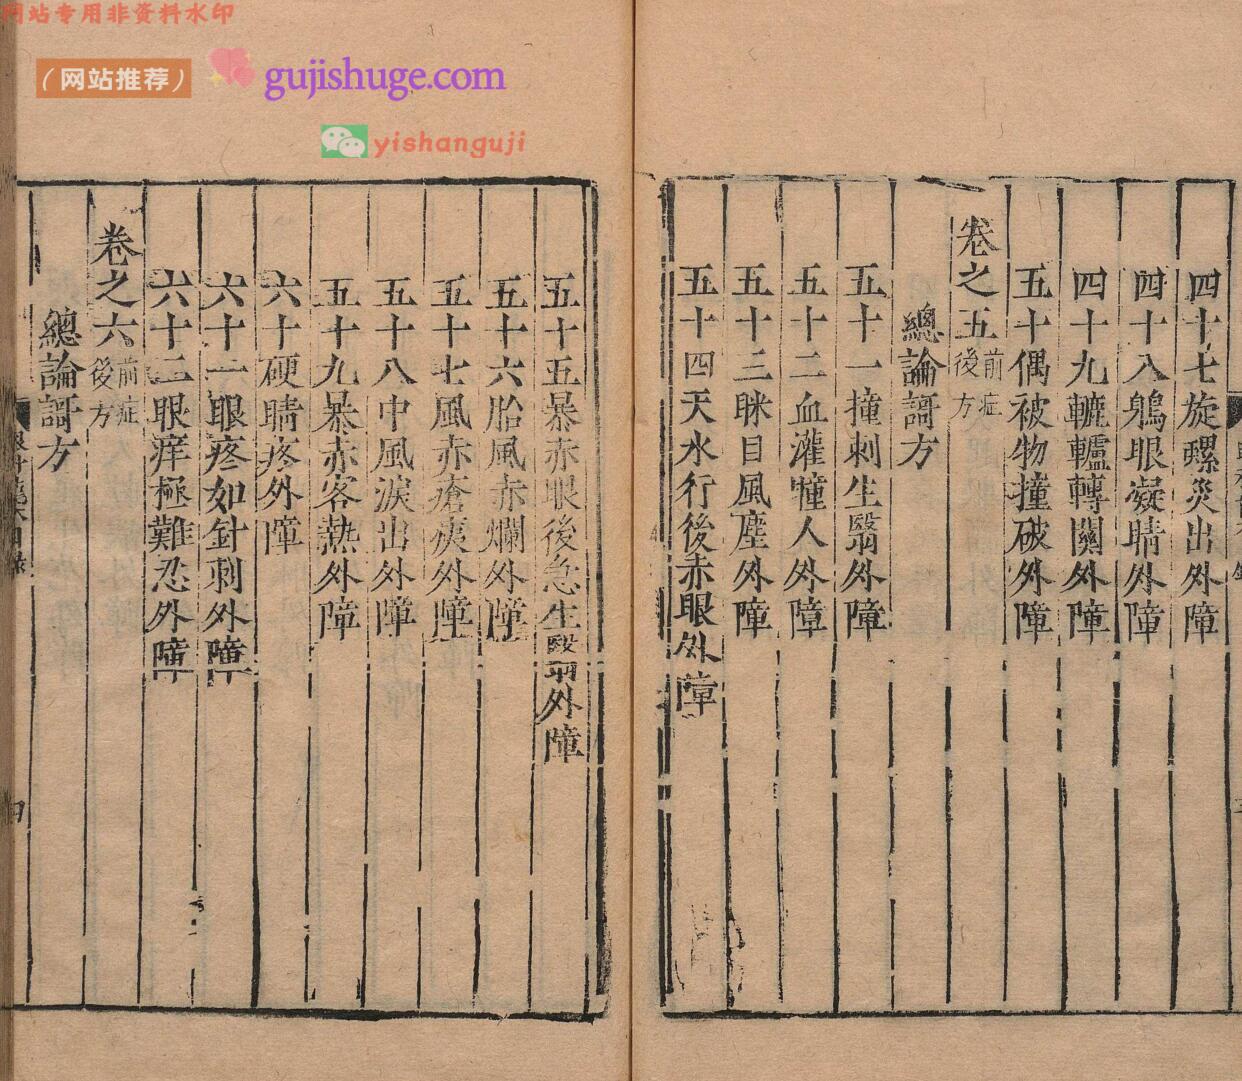 网站专用非资料水印
(网站推荐)
gujishuge.com
yishanguji
四十七旋螺災出外障
四十八鶻眼凝睛外障
四十九轆轤轉關外障
五十偶被物撞破外障
卷之五前症後方
總論謌方
五十一撞刺生翳外障
五十二血灌瞳人外障
五十三眯目風塵外障
五十四天水行後赤眼外障
五十五暴赤眼後急生翳外障
五十六胎風赤爛外障
五十七風赤瘡痍外障
五十八中風淚出外障
五十九暴赤客熱外障
六十硬睛疼外障
六十一眼疼如針刺外障
六十二眼痒極難忍外障
卷之六前症後方
總論謌方
四